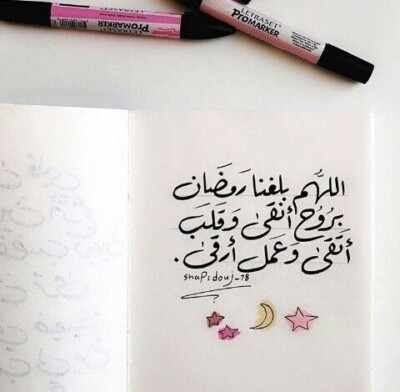 LETRASET
PROMARKER
LETRASET
PROMARKER
اللهُم بلغنا رَمضَان
برُوُح أنقىٰ وَقَلبَ
أتَقىَٰ وعَمل أرقىٰ.
snap:douj_78